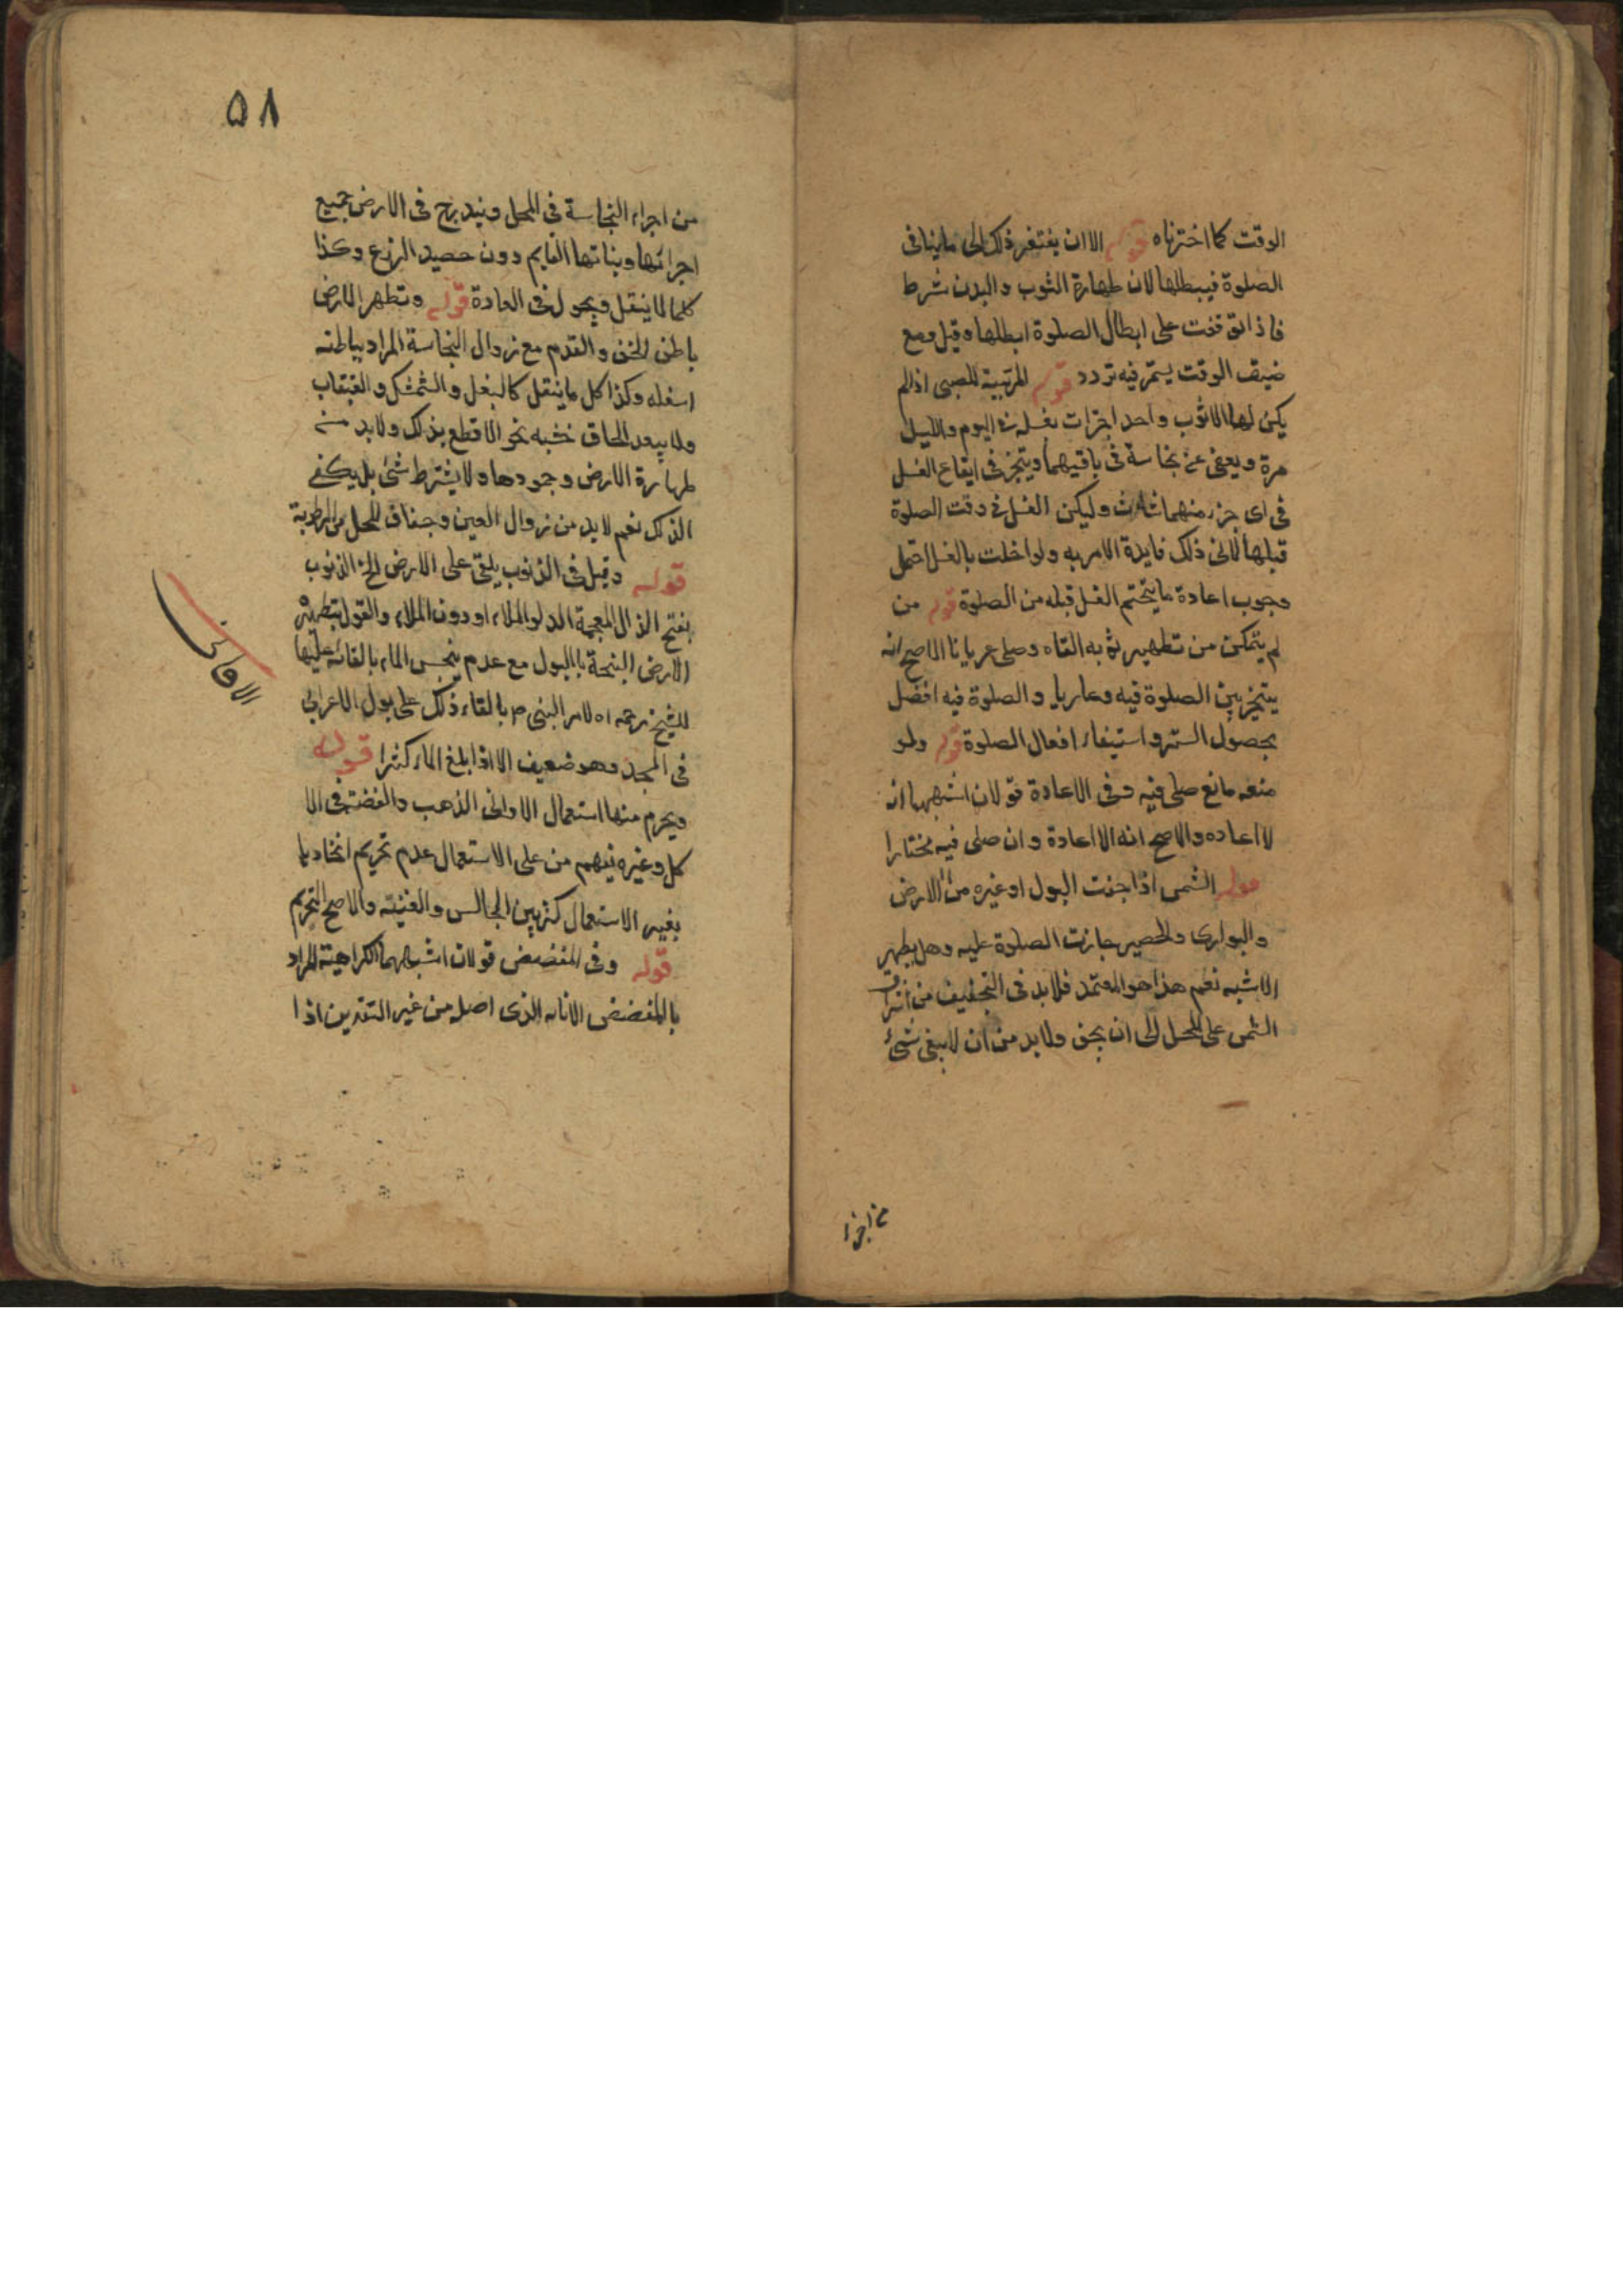 الوقت كما اخترناه قوله الا ان يفتقر ذلك الى ما ينافى
الصلوة فيبطلها لان طهارة الثوب والبدن شرط
فاذا توقفت على ابطال الصلوة ابطلها وقيل ومع
ضيق الوقت يستمر فيه تردد قوله المربية للصبى اذا لم
يكن لها الا ثوب واحد اجزات بغسله فى اليوم والليل
مرة ويعفى عن نجاسة فى باقيهما ويتخير فى ايقاع الغسل
فى اى جزء منهما شاءت وليكن الغسل فى وقت الصلوة
قبلها لان ذلك فايدة الامر به ولو اخلت بالغسل احتمل
وجوب اعادة ما يتحتم الغسل قبله من الصلوة قوله من
لم يتمكن من تطهير ثوبه القاه وصلى عريانا الاصح انه
يتخير بين الصلوة فيه وعاريا والصلوة فيه افضل
بحصول الستر واستيفاء افعال الصلوة قوله ولو
منعه مانع صلى فيه وفى الاعادة قولان اشبههما انه
لا اعاده والاصح انه لا اعادة وان صلى فيه مختارا
قوله الشمس اذا جففت البول او غيره من الارض
والبوارى والحصير جازت الصلوة عليه وهل يطهر
الاشبه نعم هذا هو المعتمد فلا بد فى التجفيف من اشراق
الشمس على المحل الى ان يجف ولا بد من ان لا يبقى شئ
من اجزا
٥٨
من اجزاء النجاسة فى المحل ويندرج فى الارض جميع
اجزائها ونباتها القايم دون حصيد الزرع وكذا
كلما لا ينقل ويحول فى العادة قوله وتطهر الارض
باطن الخف والقدم مع زوال النجاسة المراد بباطنه
اسفله وكذا كل ما ينتقل كالنعل والشمشك والقبقاب
ولا يبعد الحاق خشبه نحو الاقطع بذلك ولا بد من
طهارة الارض وجمودها ولا يشترط شئ بل يكفى
الدلك نعم لا بد من زوال العين وجفاف المحل من الرطوبة
قوله وقيل فى الذنوب يلقى على الارض الخ الذنوب
بفتح الذال المعجمة الدلو الملاء او دون الملاء والقول بتطهير
الارض النجسة بالبول مع عدم ينجس الماء بالقائه عليها
للشيخ رحمه اه لامر النبى ص بالقاء ذلك على بول الاعرابى
فى المسجد وهو ضعيف الا اذا بلغ الماء كثرا قوله
ويحرم منها استعمال الاوانى الذهب والفضة فى الا
كل وغيره يفهم من على الاستعمال عدم تحريم اتخاذها
بغير الاستعمال كتزيين المجالس والقنية والاصح التحريم
قوله وفى المفضض قولان اشبههما الكراهية المراد
بالمفضض الاناء الذى اصله من غير النقدين اذا
الاوانى